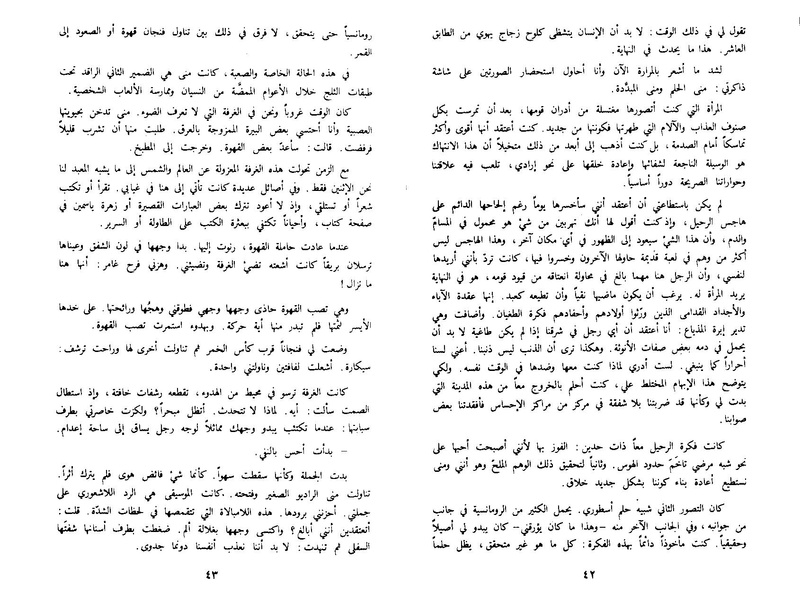 تقول لي في ذلك الوقت: لا بد أن الإنسان يتشظى كلوح زجاج يهوي من الطابق
العاشر. هذا ما يحدث في النهاية.
لشد ما أشعر بالمرارة الآن وأنا أحاول استحضار الصورتين على شاشة
ذاكرتي: منى الحلم ومنى المبدَّدة.
المرأة التي كنت أتصورها مغتسلة من أدران قومها، بعد أن تمرست بكل
صنوف العذاب والآلام التي طهرتها فكونتها من جديد. كنت أعتقد أنها أقوى وأكثر
تماسكاً أمام الصدمة، بل كنت أذهب إلى أبعد من ذلك متخيلاً أن هذا الانتهاك
هو الوسيلة الناجعة لشفائها وإعادة خلقها على نحو إرادي، تلعب فيه علاقتنا
وحواراتنا الصريحة دوراً أساسياً.
لم يكن باستطاعتي أن أعتقد أنني سأخسرها يوماً رغم إلحاحها الدائم على
هاجس الرحيل، وإذ كنت أقول لها أنك تهربين من شيّ هو محمول في المسامّ
والدم، وأن هذا الشيّ سيعود إلى الظهور في أي مكان آخر، وهذا الهاجس ليس
أكثر من وهم في لعبة قديمة حاولها الآخرون وخسروا فيها، كانت تردّ بأنني أريدها
لنفسي، وأن الرجل هنا مهما بالغ في محاولة انعتاقه من قيود قومه، هو في النهاية
يريد المرأة له. يرغب أن يكون ماضيها نقياً وأن تطيعه كعبد. إنها عقدة الآباء
والأجداد القدامى الذين ورّثوا أولادهم وأحفادهم فكرة الطغيان. وأضافت وهي
تدير إبرة المذياع: أنا أعتقد أن أي رجل في شرقنا إذا لم يكن طاغية لا بد أن
يحمل في دمه بعض صفات الأنوثة. وهكذا ترى أن الذنب ليس ذنبنا. أعني لسنا
أحراراً كما ينبغي. لست أدري لماذا كنت معها وضدها في الوقت نفسه. ولكي
يتوضح هذا الإبهام المختلط علي، كنت أحلم بالخروج معاً من هذه المدينة التي
بدت لي وكأنها قد ضربتنا بلا شفقة في مركز من مراكز الإحساس فأفقدتنا بعض
صوابنا.
كانت فكرة الرحيل معاً ذات حدين: الفوز بها لأنني أصبحت أحبها على
نحو شبه مرضي تاخَمَ حدود الهوس. وثانياً لتحقيق ذلك الوهم الملحّ وهو أنني ومنى
نستطيع أعادة بناء كوننا بشكل جديد خلاق.
كان التصور الثاني شبيه حلم أسطوري. يحمل الكثير من الرومانسية في جانب
من جوانبه، وفي الجانب الآخر منه – وهذا ما كان يؤرقني – كان يبدو لي أصيلاً
وحقيقياً. كنت مأخوذاً دائماً بهذه الفكرة: كل ما هو غير متحقق، يظل حلماً
٤٢
رومانسياً حتى يتحقق، لا فرق في ذلك بين تناول فنجان قهوة أو الصعود إلى
القمر.
في هذه الحالة الخاصة والصعبة، كانت منى هي الضمير الثاني الراقد تحت
طبقات الثلج خلال الأعوام الممضّة من النسيان وممارسة الألعاب الشخصية.
كان الوقت غروباً ونحن في الغرفة التي لا تعرف الضوء. منى تدخن بحيويتها
العصبية وأنا أحتسي بعض البيرة الممزوجة بالعرق. طلبت منها أن تشرب قليلاً
فرفضت. قالت: سأعدّ بعض القهوة. وخرجت إلى المطبخ.
مع الزمن تحولت هذه الغرفة المعزولة عن العالم والشمس إلى ما يشبه المعبد لنا
نحن الإثنين فقط. وفي أصائل عديدة كانت تأتي إلى هنا في غيابي. تقرأ أو تكتب
شعراً أو تستلقي، وإذ لا أعود تترك بعض العبارات القصيرة أو زهرة ياسمين في
صفحة كتاب، وأحياناً تكتفي ببعثرة الكتب على الطاولة أو السرير.
عندما عادت حاملة القهوة، رنوت إليها. بدا وجهها في لون الشفق وعيناها
ترسلان بريقاً كانت أشعته تضيّ الغرفة ونضيئني. وهزني فرح غامر: أنها هنا
ما تزال!
وهي تصب القهوة حاذى وجهها وجهي فطوقني وهجُها ورائحتها. على خدها
الأيسر لثمتُها فلم تبدر منها أية حركة. وبهدوء استمرت تصب القهوة.
وضعت لي فنجاناً قرب كأس الخمر ثم تناولت أخرى لها وراحت ترشف:
سيكارة. أشعلت لفافتين وناولتني واحدة.
كانت الغرفة ترسو في محيط من الهدوء، تقطعه رشفات خافتة، وإذ استطال
الصمت سألت: أيه. لماذا لا تتحدث. أتظل مبحراً؟ ولكزت خاصرتي بطرف
سبابتها: عندما تكتئب يبدو وجهك مماثلاً لوجه رجل يساق إلى ساحة إعدام.
– بدأت أحس بالنفي.
بدت الجملة وكأنها سقطت سهواً. كأنما شيّ فائض هوى فلم يترك أثراً.
تناولت منى الراديو الصغير وفتحته. كانت الموسيقى هي الرد اللاشعوري على
جملتي. أحزنني برودها. هذه اللامبالاة التي تتقمصها في لحظات الشدّة. قلت:
أتعتقدين أنني أبالغ؟ واكتسى وجهها بغلالة ألم. ضغطت بطرف أسنانها شفتَها
السفلى ثم تنهدت: لا بد أننا نعذب أنفسنا دونما جدوى.
٤٣